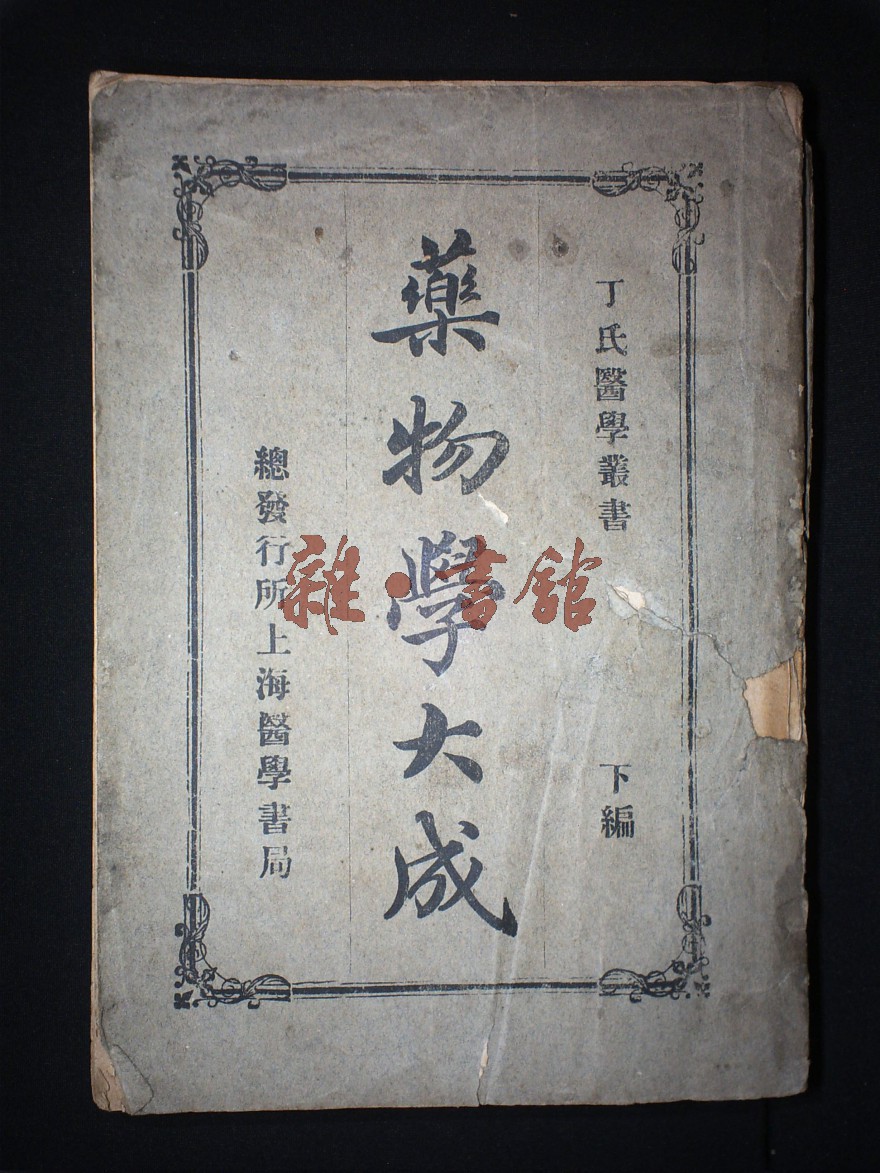 丁氏醫學叢書
下編
藥物學大成
總發行所上海醫學書局
雜·書館